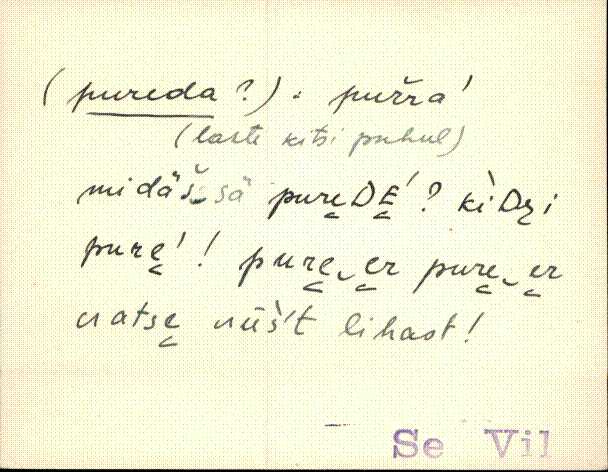 (pureda?). purra'
(laste kitsi puhul)
midäš sä pureDE'? kìDzi
pure̮'! pure̮‿e̮r pure̮‿e̮r
vatse̮ vūš't lihast!
Se Vil